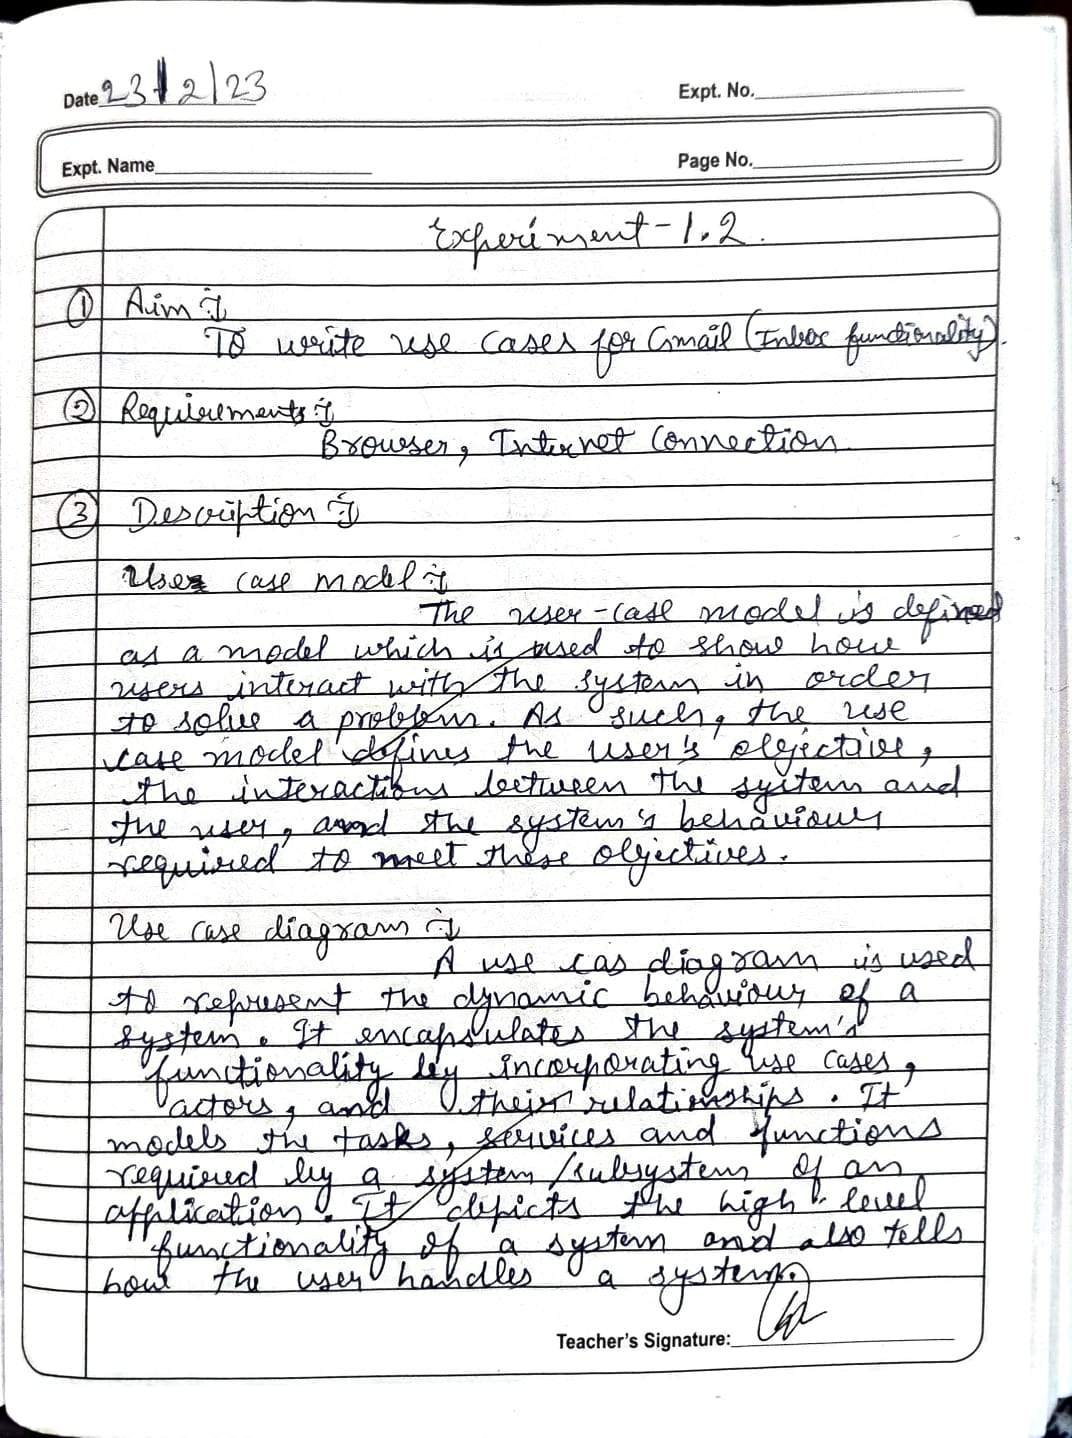 Date 23/2/23
Expt. No.
Expt. Name
Page No.
Experiment-1.2.
① Aim :-
To write use cases for Gmail (Inbox functionality).
② Requirements :-
Browser, Internet Connection.
③ Description :-
Use case model :-
The user-case model is defined
as a model which is used to show how
users interact with the system in order
to solve a problem. As such, the use
case model defines the user's objective,
the interactions between the system and
the user, and the system's behaviour
required to meet these objectives.
Use case diagram :-
A use cas diagram is used
to represent the dynamic behaviour of a
system. It encapsulates the system's
functionality by incorporating use cases,
actors, and their relationships. It
models the tasks, services and functions
required by a system/subsystem of an
application. It depicts the high-level
functionality of a system and also tells
how the user handles a system.
Teacher's Signature: